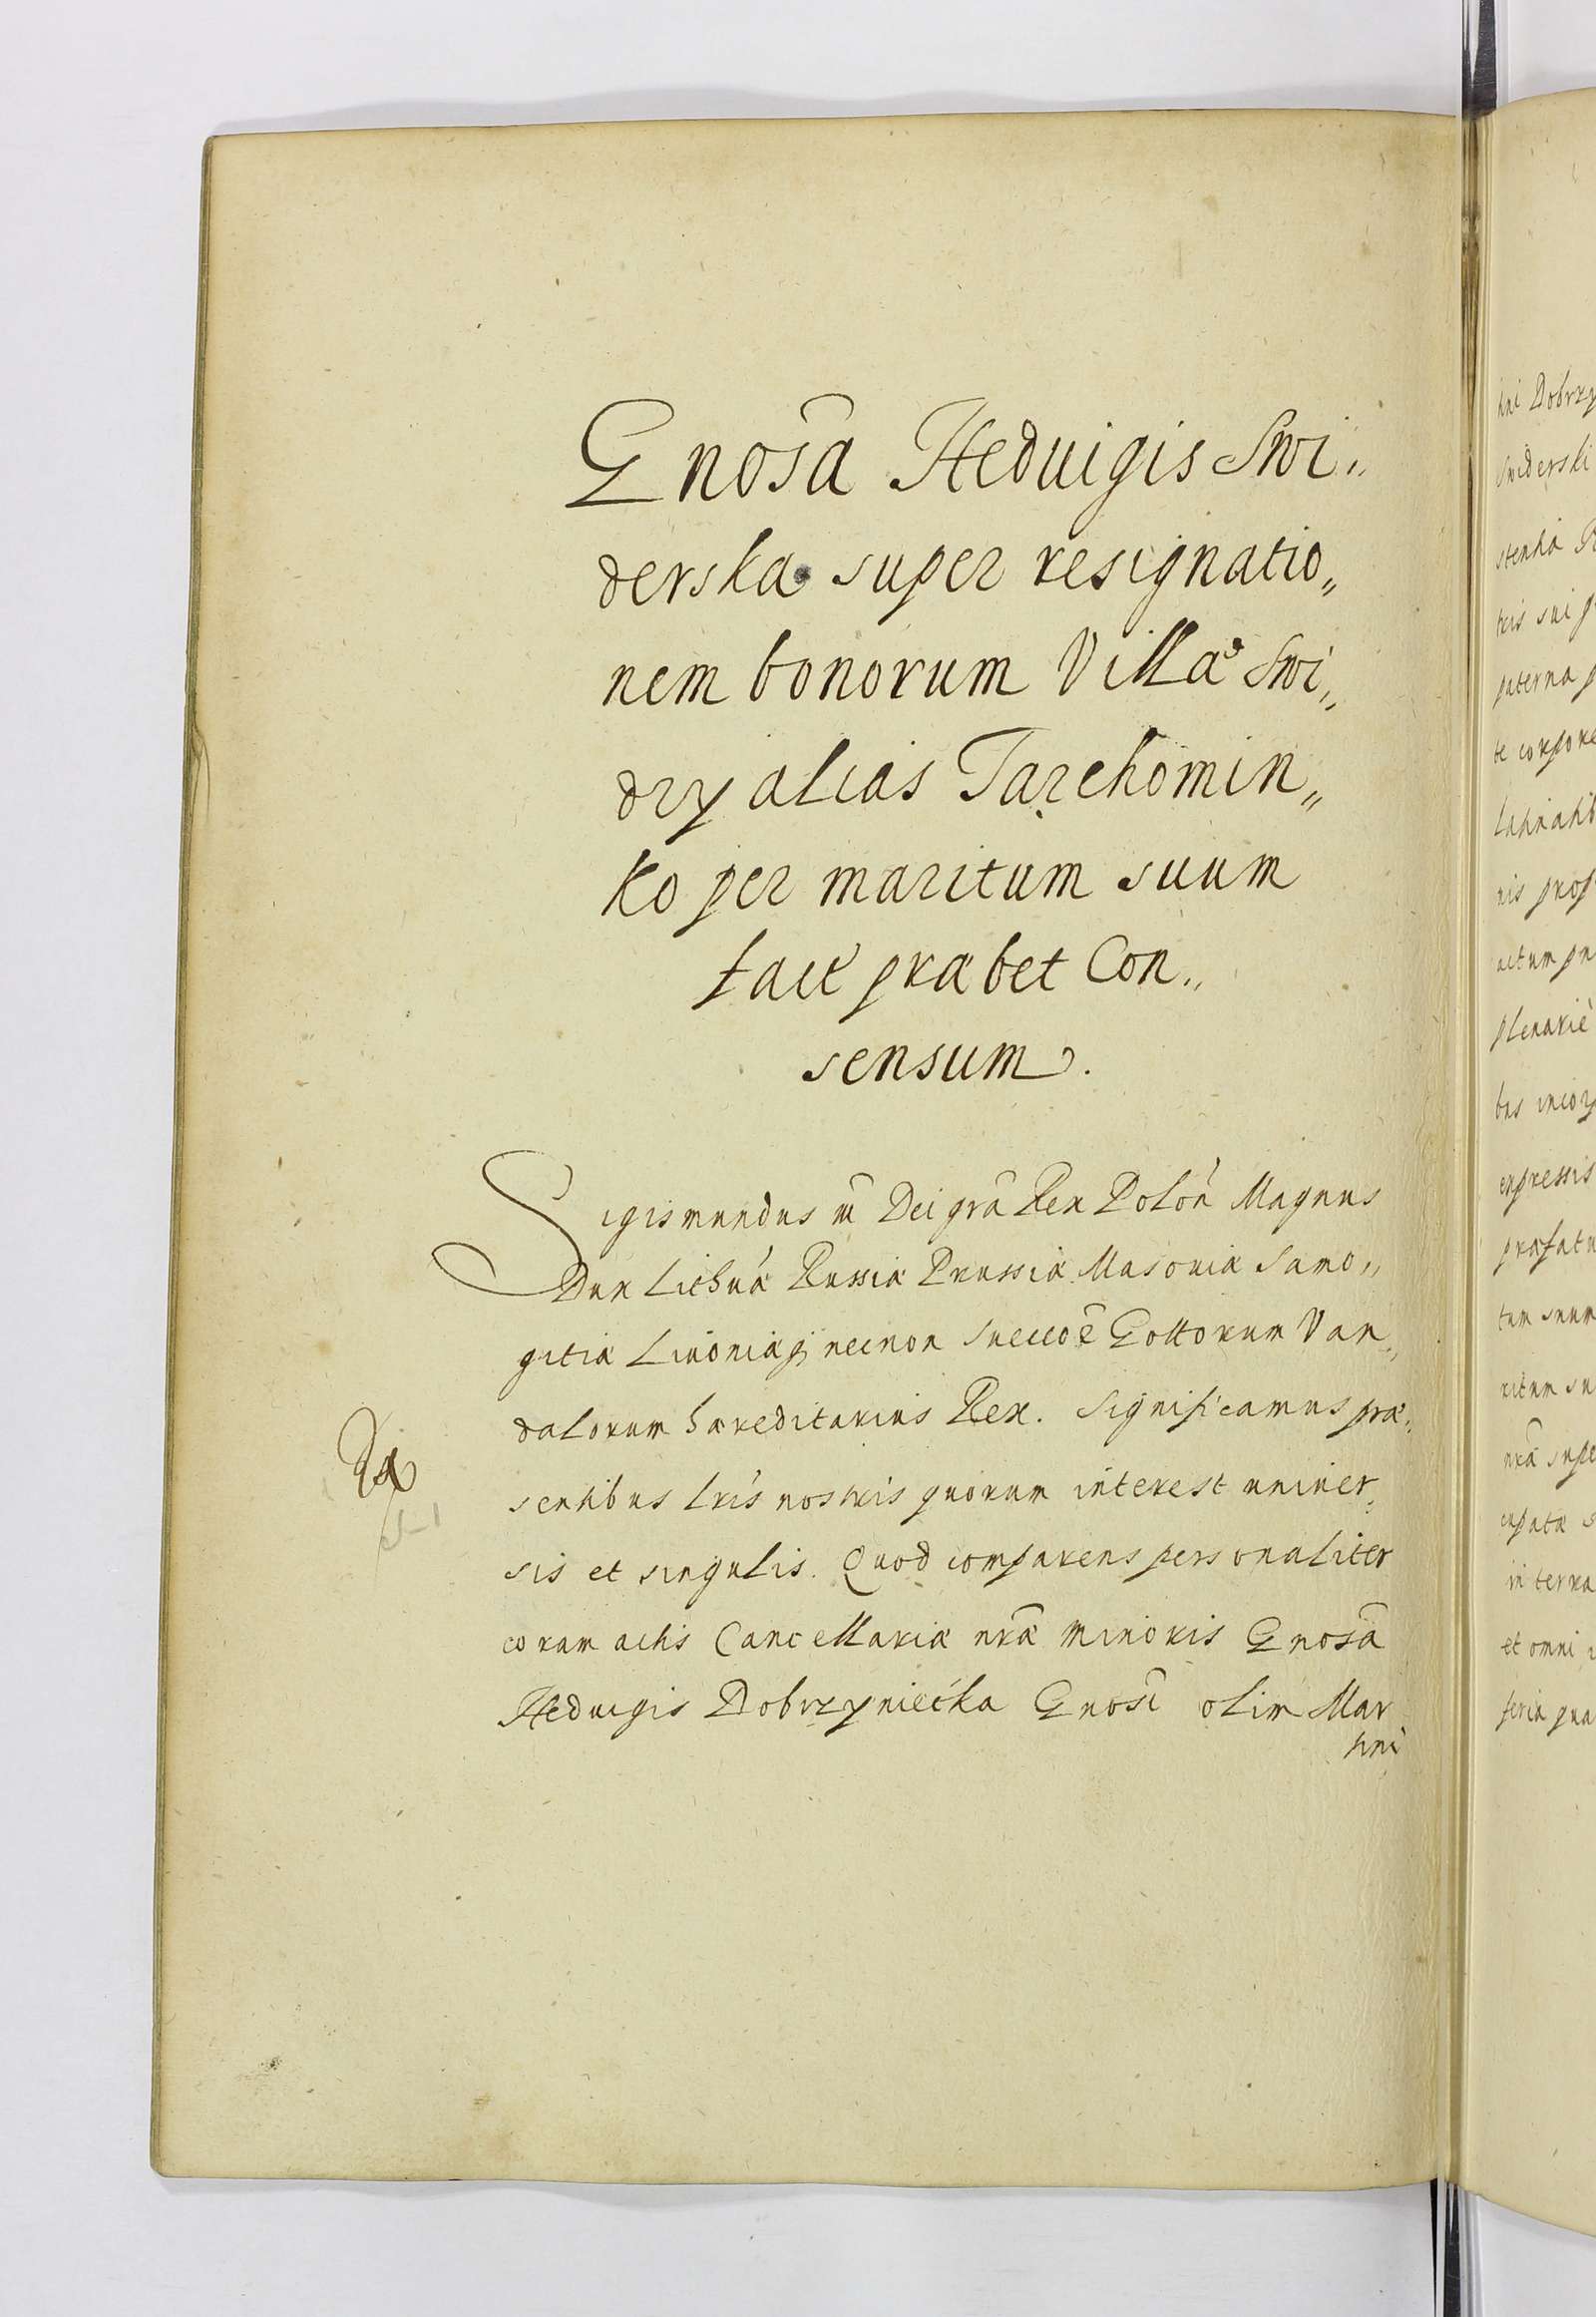 Gnosa Heduigis Swi„
derska super resignatio„
nem bonorum Villæ Swi„
dry alias Tarchomin„
ko per maritum suum
fact præbet Con„
sensum.
Sigismundus III Dei gra Rex Polon Magnus
Dux Lithuæ Russiæ Prussiæ Masouiæ Samo„
gitiæ Liuoniæq; necnon Suecoe Gottorum Van„
dalorum hæreditarius Rex. Significamus præ„
sentibus lris nostris quorum interest uniuer„
sis et singulis. Quod comparens personaliter
coram actis Cancellariæ nræ minoris Gnosa
Heduigis Dobrzyniecka Gnosi olim Mar
tini
ini Dobrzy
Swiderski
stentia
tris sui
paterna
te corpore
nis prop
actum
plenarie
bus incor
expressis
præfatu
tum suum
ritum su
nra supe
cupatæ
in terra
et omni
feria qua